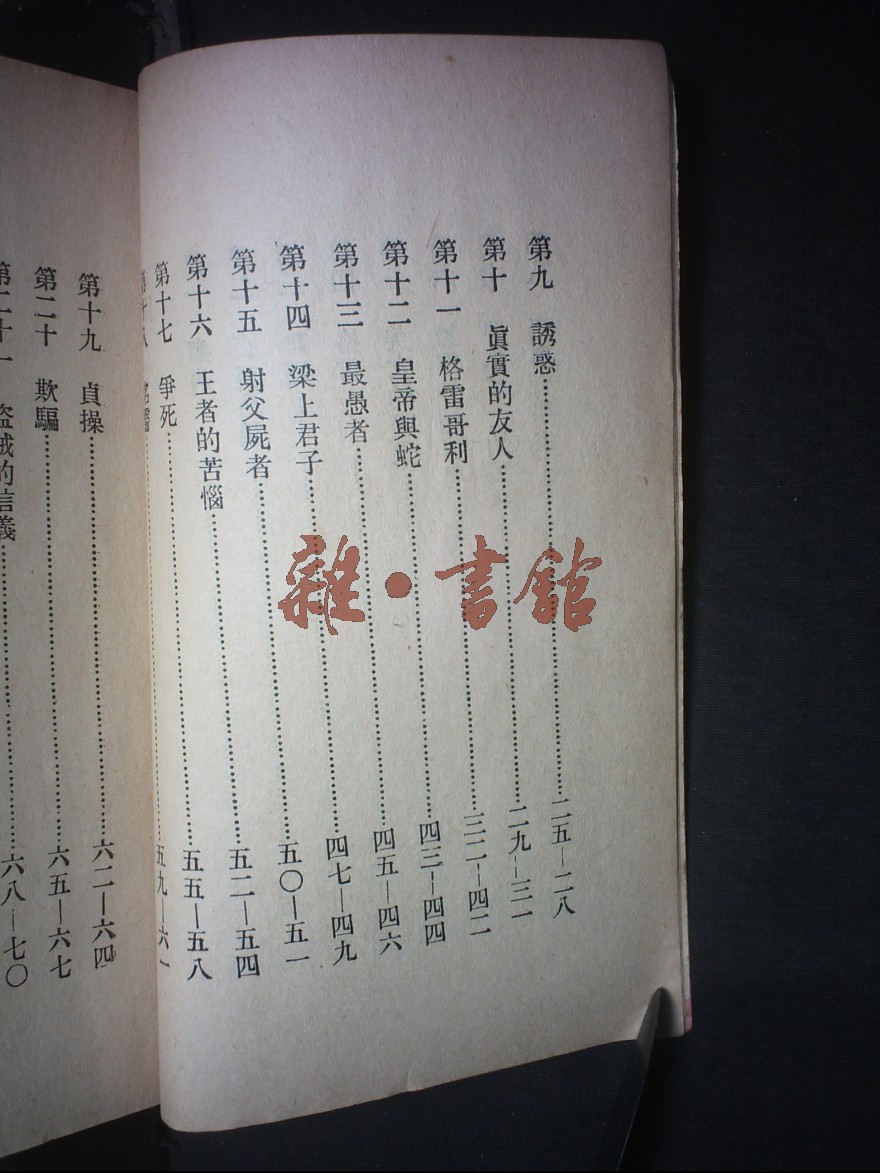 第九　誘惑…………二五—二八
第十　眞實的友人…………二九—三一
第十一　格雷哥利…………三二—四二
第十二　皇帝與蛇…………四三—四四
第十三　最愚者…………四五—四六
第十四　梁上君子…………四七—四九
第十五　射父屍者…………五〇—五一
第十六　王者的苦惱…………五二—五四
第十七　爭死…………五五—五八
第十八…………五九—六一
第十九　貞操…………六二—六四
第二十　欺騙…………六五—六七
第二十一　盜賊的信義…………六八—七〇
雜·書館